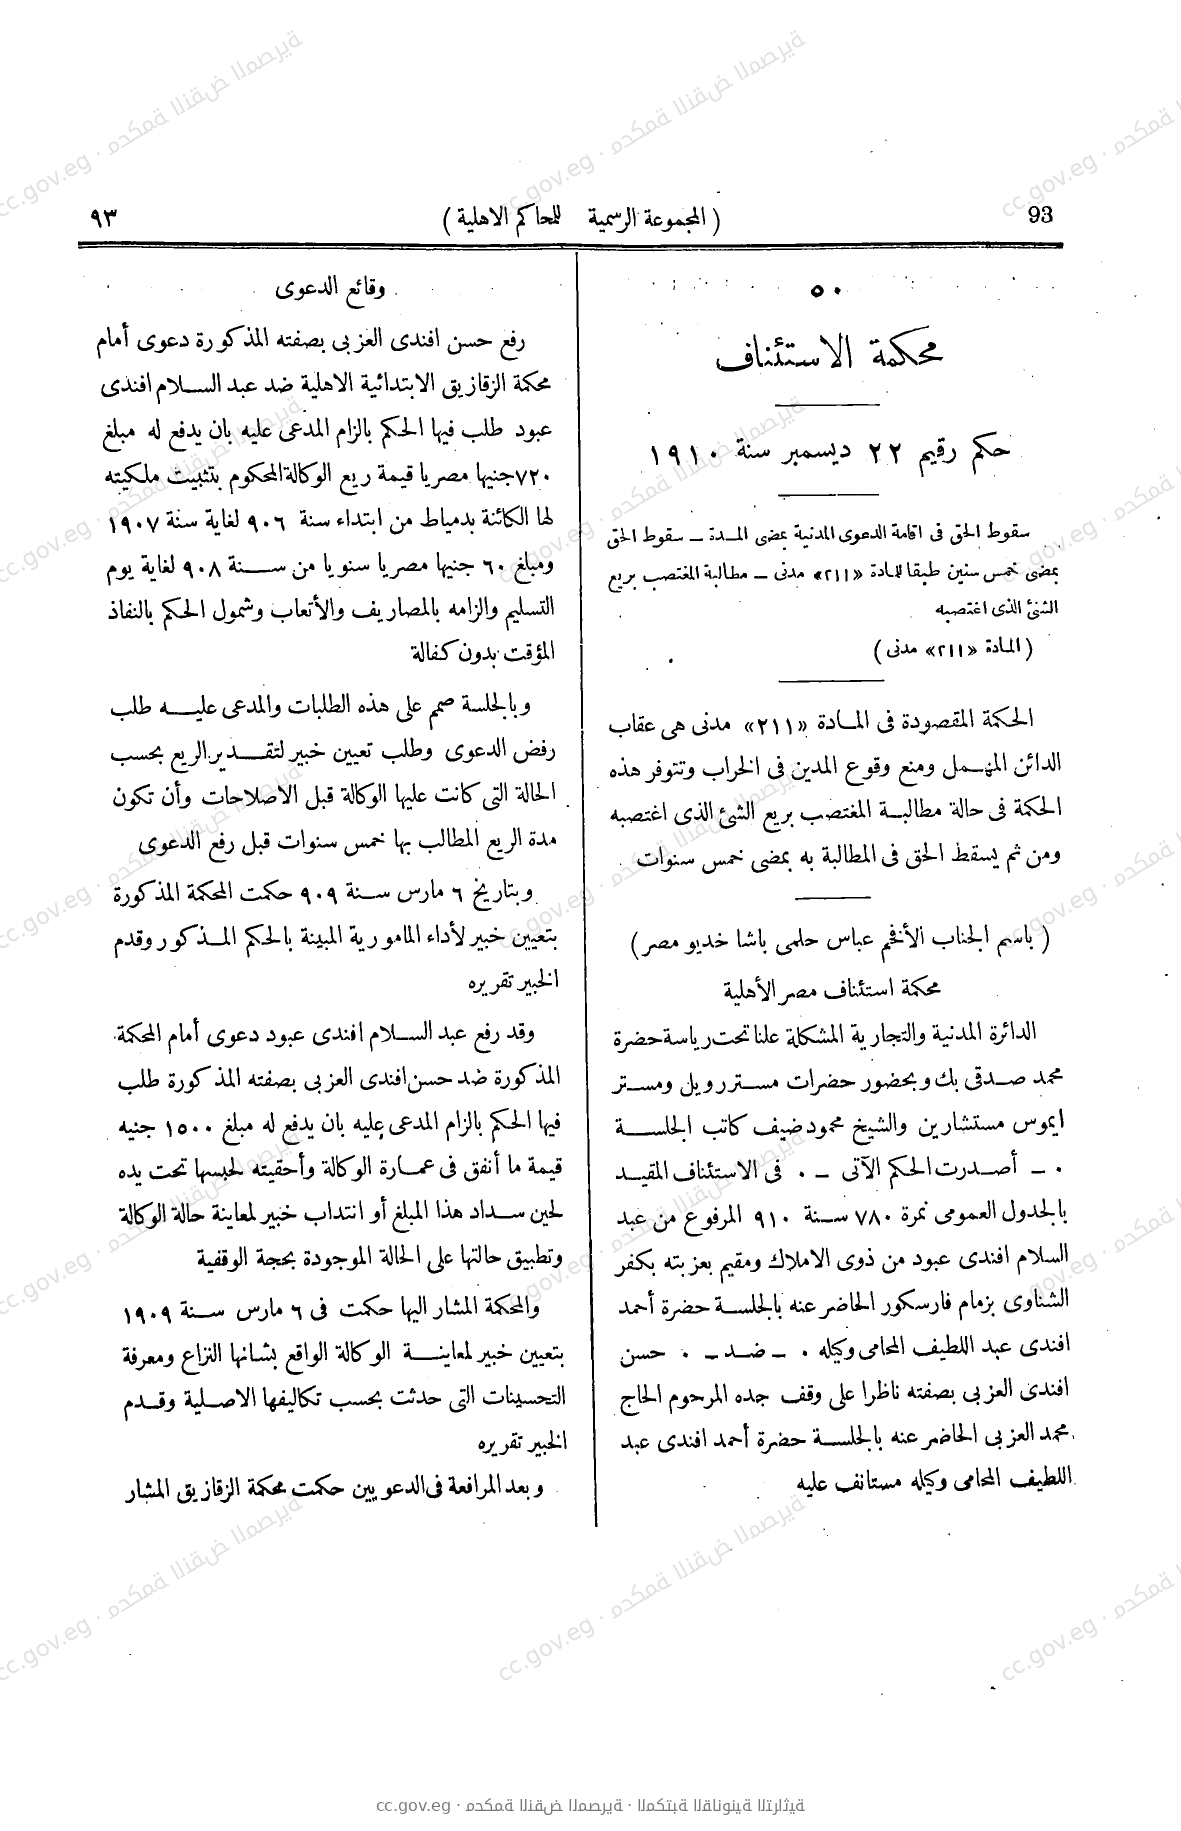 93
( المجموعة الرسمية للمحاكم الاهلية )
٩٣
٥٠
محكمة الاستئناف
حكم رقيم ٢٢ ديسمبر سنة ١٩١٠
سقوط الحق فى اقامة الدعوى المدنية بمضى المدة ــ سقوط الحق
بمضى خمس سنين طبقا للمادة «٢١١» مدنى ــ مطالبة المغتصب بريع
الشئ الذى اغتصبه
( المادة «٢١١» مدنى )
الحكمة المقصودة فى المادة «٢١١» مدنى هى عقاب
الدائن المهمل ومنع وقوع المدين فى الخراب وتتوفر هذه
الحكمة فى حالة مطالبة المغتصب بريع الشئ الذى اغتصبه
ومن ثم يسقط الحق فى المطالبة به بمضى خمس سنوات
( باسم الجناب الأفخم عباس حلمى باشا خديو مصر )
محكمة استئناف مصر الأهلية
الدائرة المدنية والتجارية المشكلة علنا تحت رياسة حضرة
محمد صدقى بك وبحضور حضرات مستر رويل ومستر
ايموس مستشارين والشيخ محمود ضيف كاتب الجلسة
٠ ــ أصدرت الحكم الآتى ــ ٠ فى الاستئناف المقيد
بالجدول العمومى نمرة ٧٨٠ سنة ٩١٠ المرفوع من عبد
السلام افندى عبود من ذوى الاملاك ومقيم بعزبته بكفر
الشناوى بزمام فارسكور الحاضر عنه بالجلسة حضرة أحمد
افندى عبد اللطيف المحامى وكيله ٠ ــ ضد ــ ٠ حسن
افندى العزبى بصفته ناظرا على وقف جده المرحوم الحاج
محمد العزبى الحاضر عنه بالجلسة حضرة أحمد افندى عبد
اللطيف المحامى وكيله مستانف عليه
وقائع الدعوى
رفع حسن افندى العزبى بصفته المذكورة دعوى أمام
محكمة الزقازيق الابتدائية الاهلية ضد عبد السلام افندى
عبود طلب فيها الحكم بالزام المدعى عليه بان يدفع له مبلغ
٧٢٠ جنيها مصريا قيمة ريع الوكالة المحكوم بتثبيت ملكيته
لها الكائنة بدمياط من ابتداء سنة ٩٠٦ لغاية سنة ١٩٠٧
ومبلغ ٦٠ جنيها مصريا سنويا من سنة ٩٠٨ لغاية يوم
التسليم والزامه بالمصاريف والأتعاب وشمول الحكم بالنفاذ
المؤقت بدون كفالة
وبالجلسة صمم على هذه الطلبات والمدعى عليه طلب
رفض الدعوى وطلب تعيين خبير لتقدير الريع بحسب
الحالة التى كانت عليها الوكالة قبل الاصلاحات وأن تكون
مدة الريع المطالب بها خمس سنوات قبل رفع الدعوى
وبتاريخ ٦ مارس سنة ٩٠٩ حكمت المحكمة المذكورة
بتعيين خبير لأداء المامورية المبينة بالحكم المذكور وقدم
الخبير تقريره
وقد رفع عبد السلام افندى عبود دعوى أمام المحكمة
المذكورة ضد حسن افندى العزبى بصفته المذكورة طلب
فيها الحكم بالزام المدعى عليه بان يدفع له مبلغ ١٥٠٠ جنيه
قيمة ما أنفق فى عمارة الوكالة وأحقيته لحبسها تحت يده
لحين سداد هذا المبلغ أو انتداب خبير لمعاينة حالة الوكالة
وتطبيق حالتها على الحالة الموجودة بحجة الوقفية
والمحكمة المشار اليها حكمت فى ٦ مارس سنة ١٩٠٩
بتعيين خبير لمعاينة الوكالة الواقع بشانها النزاع ومعرفة
التحسينات التى حدثت بحسب تكاليفها الاصلية وقدم
الخبير تقريره
وبعد المرافعة فى الدعويين حكمت محكمة الزقازيق المشار
cc.gov.eg · محكمة النقض المصرية · المكتبة القانونية التراثية